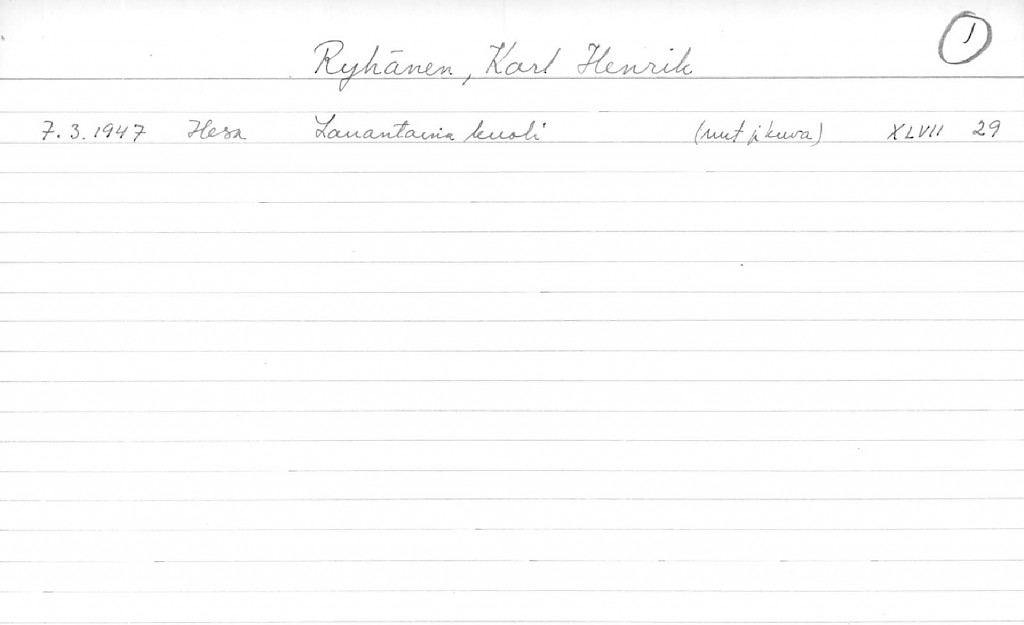 1
Ryhänen, Karl Henrik
7.3.1947 Hesa Lauantaina kuoli (uut j kuva) XLVII 29